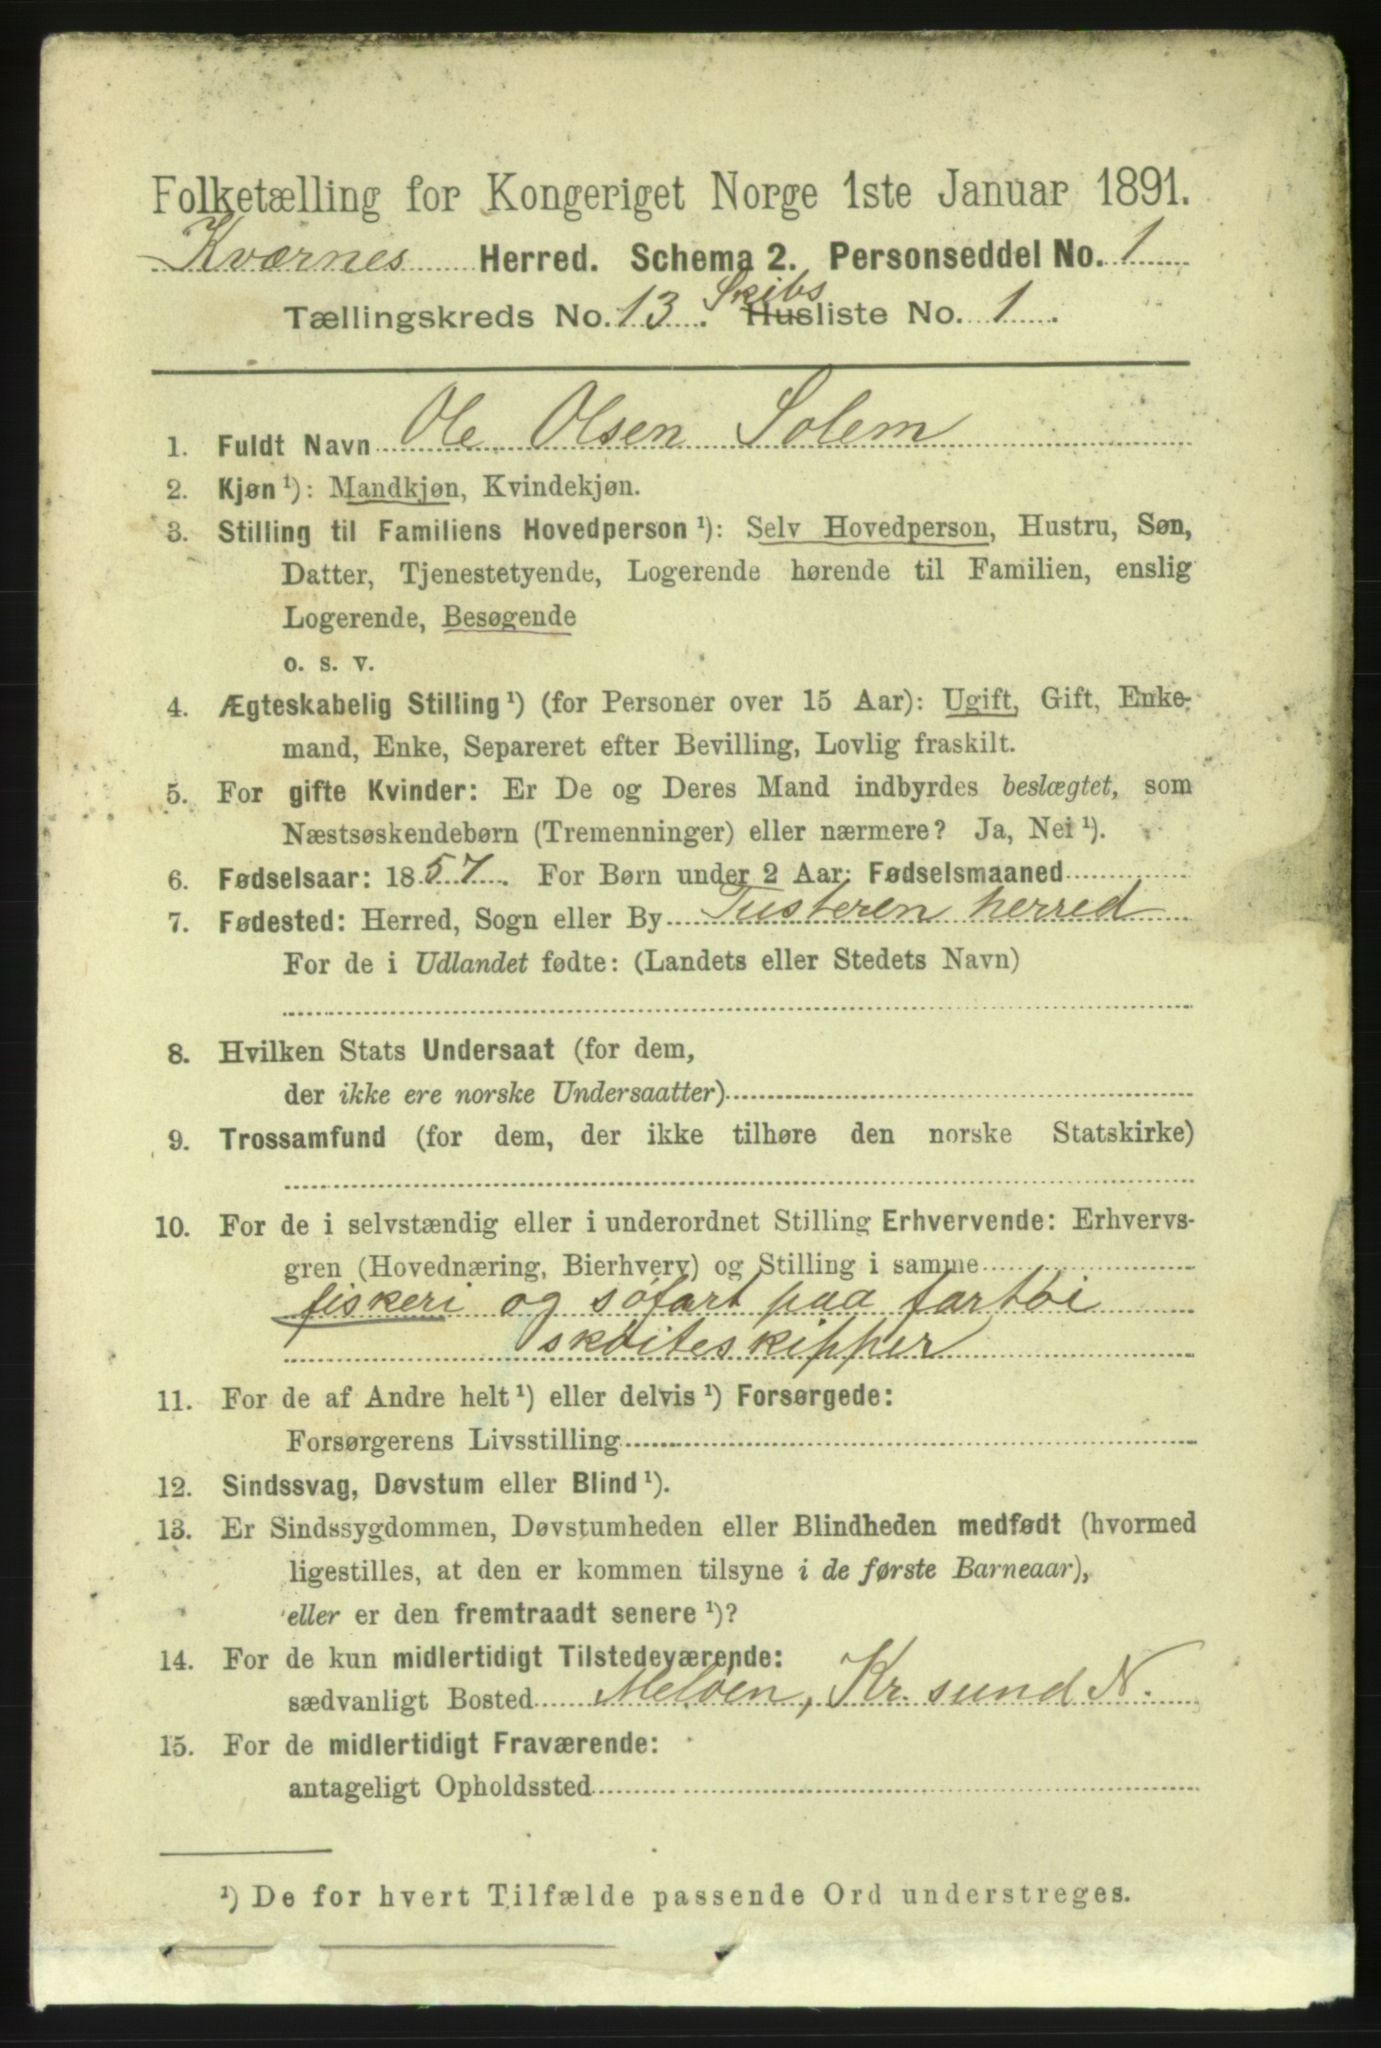 Folketælling for Kongeriget Norge 1ste Januar 1891.
Kværnes Herred. Schema 2. Personseddel No. 1
Tællingskreds No. 13. Skibs Husliste No. 1.
1. Fuldt Navn Ole Olsen Solem
2. Kjøn ¹): Mandkjøn, Kvindekjøn.
3. Stilling til Familiens Hovedperson ¹): Selv Hovedperson, Hustru, Søn,
Datter, Tjenestetyende, Logerende hørende til Familien, enslig
Logerende, Besøgende
o. s. v.
4. Ægteskabelig Stilling ¹) (for Personer over 15 Aar): Ugift, Gift, Enke-
mand, Enke, Separeret efter Bevilling, Lovlig fraskilt.
5. For gifte Kvinder: Er De og Deres Mand indbyrdes beslægtet, som
Næstsøskendebørn (Tremenninger) eller nærmere? Ja, Nei ¹).
6. Fødselsaar: 1857. For Børn under 2 Aar: Fødselsmaaned
7. Fødested: Herred, Sogn eller By Tusteren herred
For de i Udlandet fødte: (Landets eller Stedets Navn)
8. Hvilken Stats Undersaat (for dem,
der ikke ere norske Undersaatter)
9. Trossamfund (for dem, der ikke tilhøre den norske Statskirke)
10. For de i selvstændig eller i underordnet Stilling Erhvervende: Erhvervs-
gren (Hovednæring, Bierhverv) og Stilling i samme
fiskeri og søfart paa fartøi
skøiteskipper
11. For de af Andre helt ¹) eller delvis ¹) Forsørgede:
Forsørgerens Livsstilling
12. Sindssvag, Døvstum eller Blind ¹).
13. Er Sindssygdommen, Døvstumheden eller Blindheden medfødt (hvormed
ligestilles, at den er kommen tilsyne i de første Barneaar),
eller er den fremtraadt senere ¹)?
14. For de kun midlertidigt Tilstedeværende:
sædvanligt Bosted Meløen, Kr. sund N.
15. For de midlertidigt Fraværende:
antageligt Opholdssted
¹) De for hvert Tilfælde passende Ord understreges.